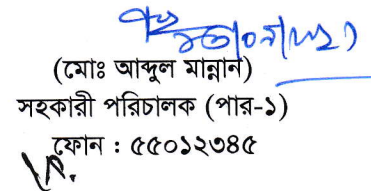 (মোঃ আব্দুল মান্নান)
সহকারী পরিচালক (পার-১)
ফোন : ৫৫০১২৩৪৫